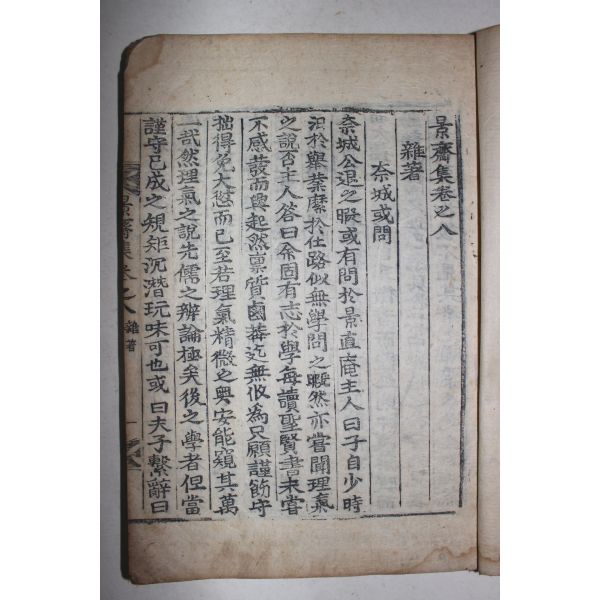 景齋集卷之八
雜著
奈城或問
奈城公退之暇或有問於景直庵主人曰子自少時
汩於舉業縻於仕路似無學問之暇然亦嘗聞理氣
之說否主人答曰余固有志於學每讀聖賢書未嘗
不感發而興起然稟質鹵莽迄無攸為只願謹飭守
拙得免大愆而已至若理氣精微之奧安能窺其萬
一哉然理氣之說先儒之辨論極矣後之學者但當
謹守已成之規矩沉潛玩味可也或曰夫子繫辭曰
景齋集卷之八 雜著 一